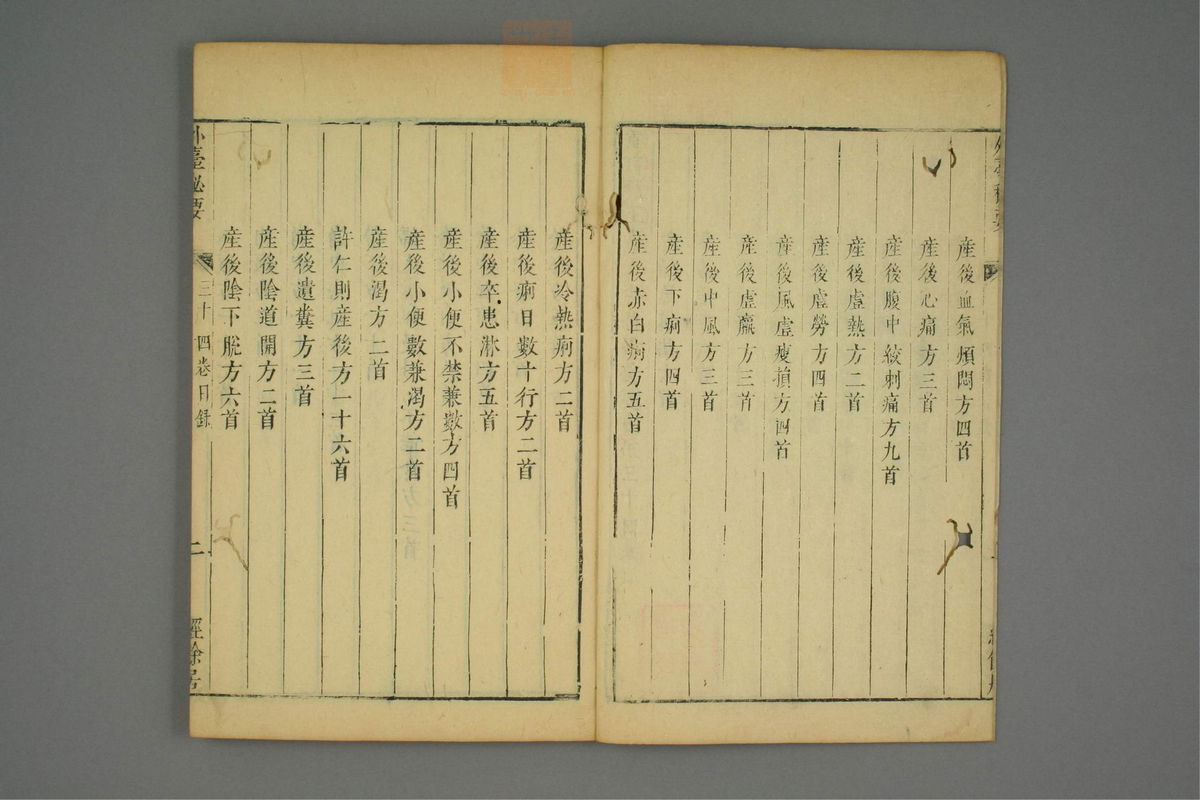 產後血氣煩悶方四首
產後心痛方三首
產後腹中絞刺痛方九首
產後虛熱方二首
產後虛勞方四首
產後風虛瘦損方四首
產後虛羸方三首
產後中風方三首
產後下痢方四首
產後赤白痢方五首
產後冷熱痢方二首
產後痢日數十行方二首
產後卒患淋方五首
產後小便不禁兼數方四首
產後小便數兼渴方二首
產後渴方二首
許仁則產後方一十六首
產後遺糞方三首
產後陰道開方二首
產後陰下脫方六首
外臺秘要
三十四卷目錄
二
經餘居